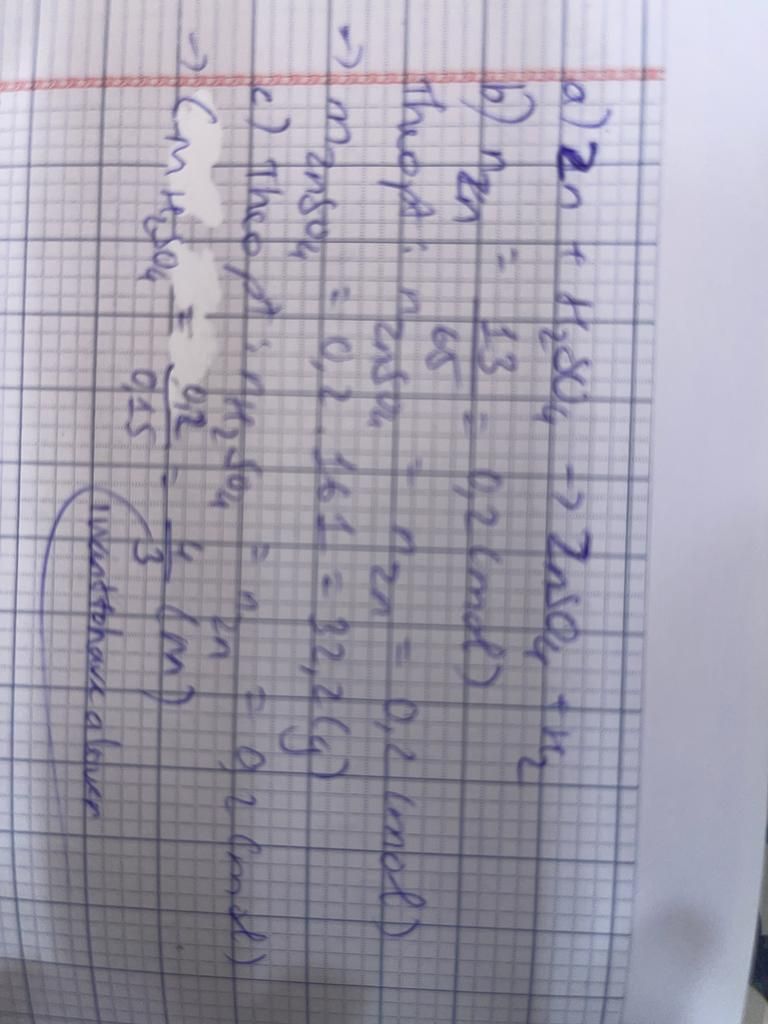 a) Zn + H₂SO₄ → ZnSO₄ + H₂
b) n Zn = 13/65 = 0,2 (mol)
Theo pt: n ZnSO₄ = n Zn = 0,2 (mol)
→ m ZnSO₄ = 0,2 . 161 = 32,2 (g)
c) Theo pt: n H₂SO₄ = n Zn = 0,2 (mol)
→ CM H₂SO₄ = 0,2/0,15 = 4/3 (M)
I want to have a